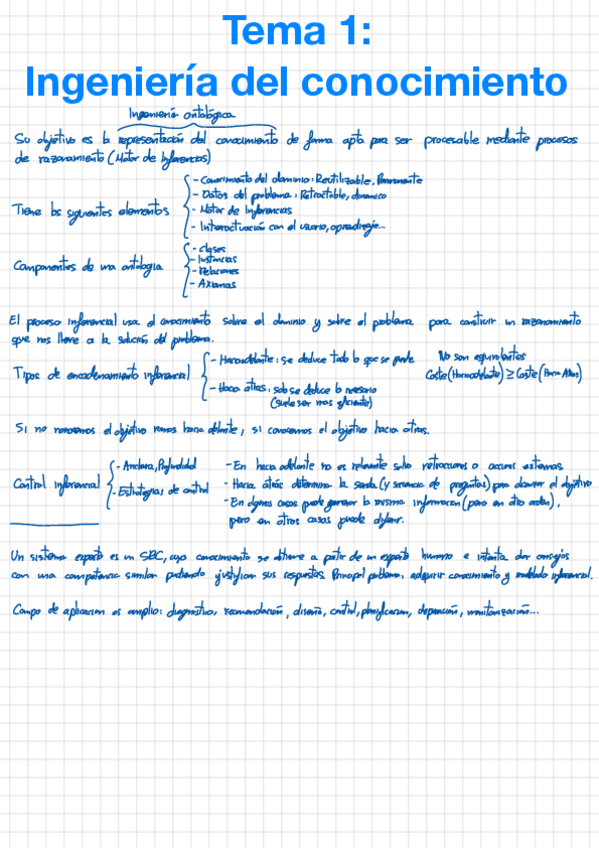 Tema 1:
Ingeniería del conocimiento
Ingeniería ontológica
Su objetivo es la representación del conocimiento de forma apta para ser procesable mediante procesos
de razonamiento (Motor de Inferencias)
Tiene los siguientes elementos
- Conocimiento del dominio: Reutilizable, Permanente
- Datos del problema: Retractable, dinámico
- Motor de Inferencias
- Interactuación con el usuario, aprendizaje...
Componentes de una ontología
- Clases
- Instancias
- Relaciones
- Axiomas
El proceso inferencial usa el conocimiento sobre el dominio y sobre el problema para construir un razonamiento
que nos lleve a la solución del problema.
Tipos de encadenamiento inferencial
- Hacia adelante: se deduce todo lo que se puede
- Hacia atrás: solo se deduce lo necesario
(suele ser mas eficiente)
No son equivalentes
Coste (Hacia adelante) ≥ Coste (Hacia Atras)
Si no conocemos el objetivo vamos hacia delante, si conocemos el objetivo hacia atras.
Control inferencial
- Anchura, Profundidad
- Estrategias de control
- En hacia adelante no es relevante salvo retracciones o acciones externas
- Hacia atrás determina la senda (y secuencia de preguntas) para alcanzar el objetivo
- En algunos casos puede generar la misma informacion (pero en otro orden),
pero en otros casos puede diferir.
Un sistema experto es un SBC, cuyo conocimiento se obtiene a partir de un experto humano e intenta dar consejos
con una competencia similar pudiendo justificar sus respuestas. Principal problema: adquirir conocimiento y modelado inferencial.
Campo de aplicacion es amplio: diagnóstico, recomendación, diseño, control, planificacion, depuración, monitorización...